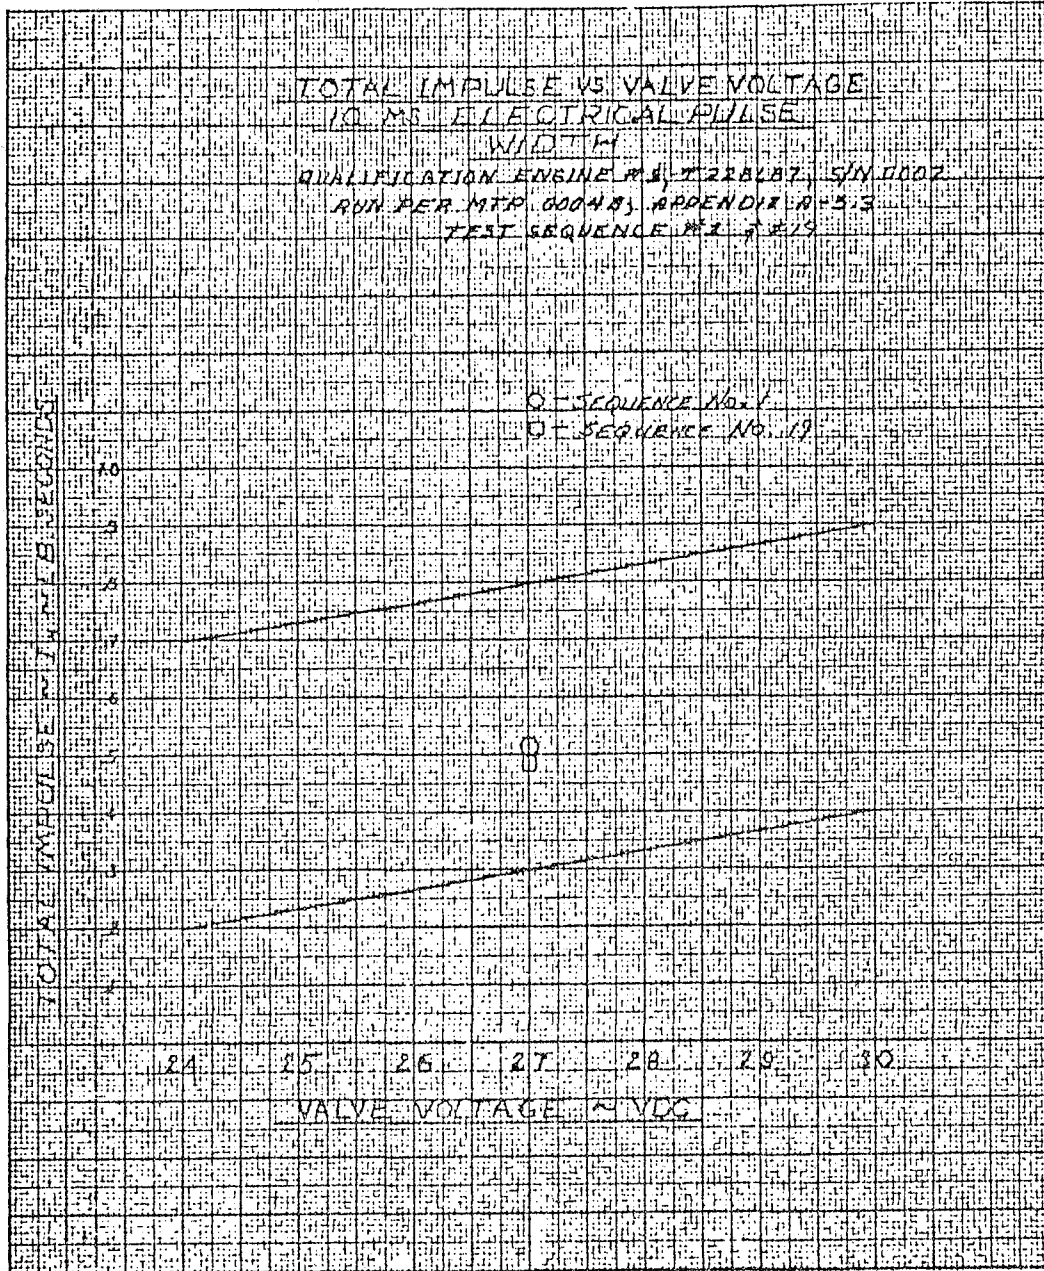 TOTAL IMPULSE VS VALVE VOLTAGE
10 MS ELECTRICAL PULSE
WIDTH
QUALIFICATION ENGINE #1, T228687, S/N 0002
RUN PER MTP 0004B, APPENDIX A-3.3
TEST SEQUENCE #1 #19
O - SEQUENCE No. 1
O - SEQUENCE NO. 19
TOTAL IMPULSE ~ LB SECONDS
1.0
.9
.8
.7
.6
.5
.4
.3
.2
.1
24 25 26 27 28 29 30
VALVE VOLTAGE ~ VDC